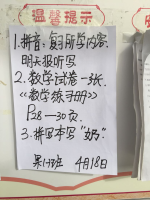 温馨提示
1.拼音:复习所学内容.
明天报听写
2.数学试卷一张.
《数学练习册》
P28—30页.
3.拼写本写"奶".
4月18日